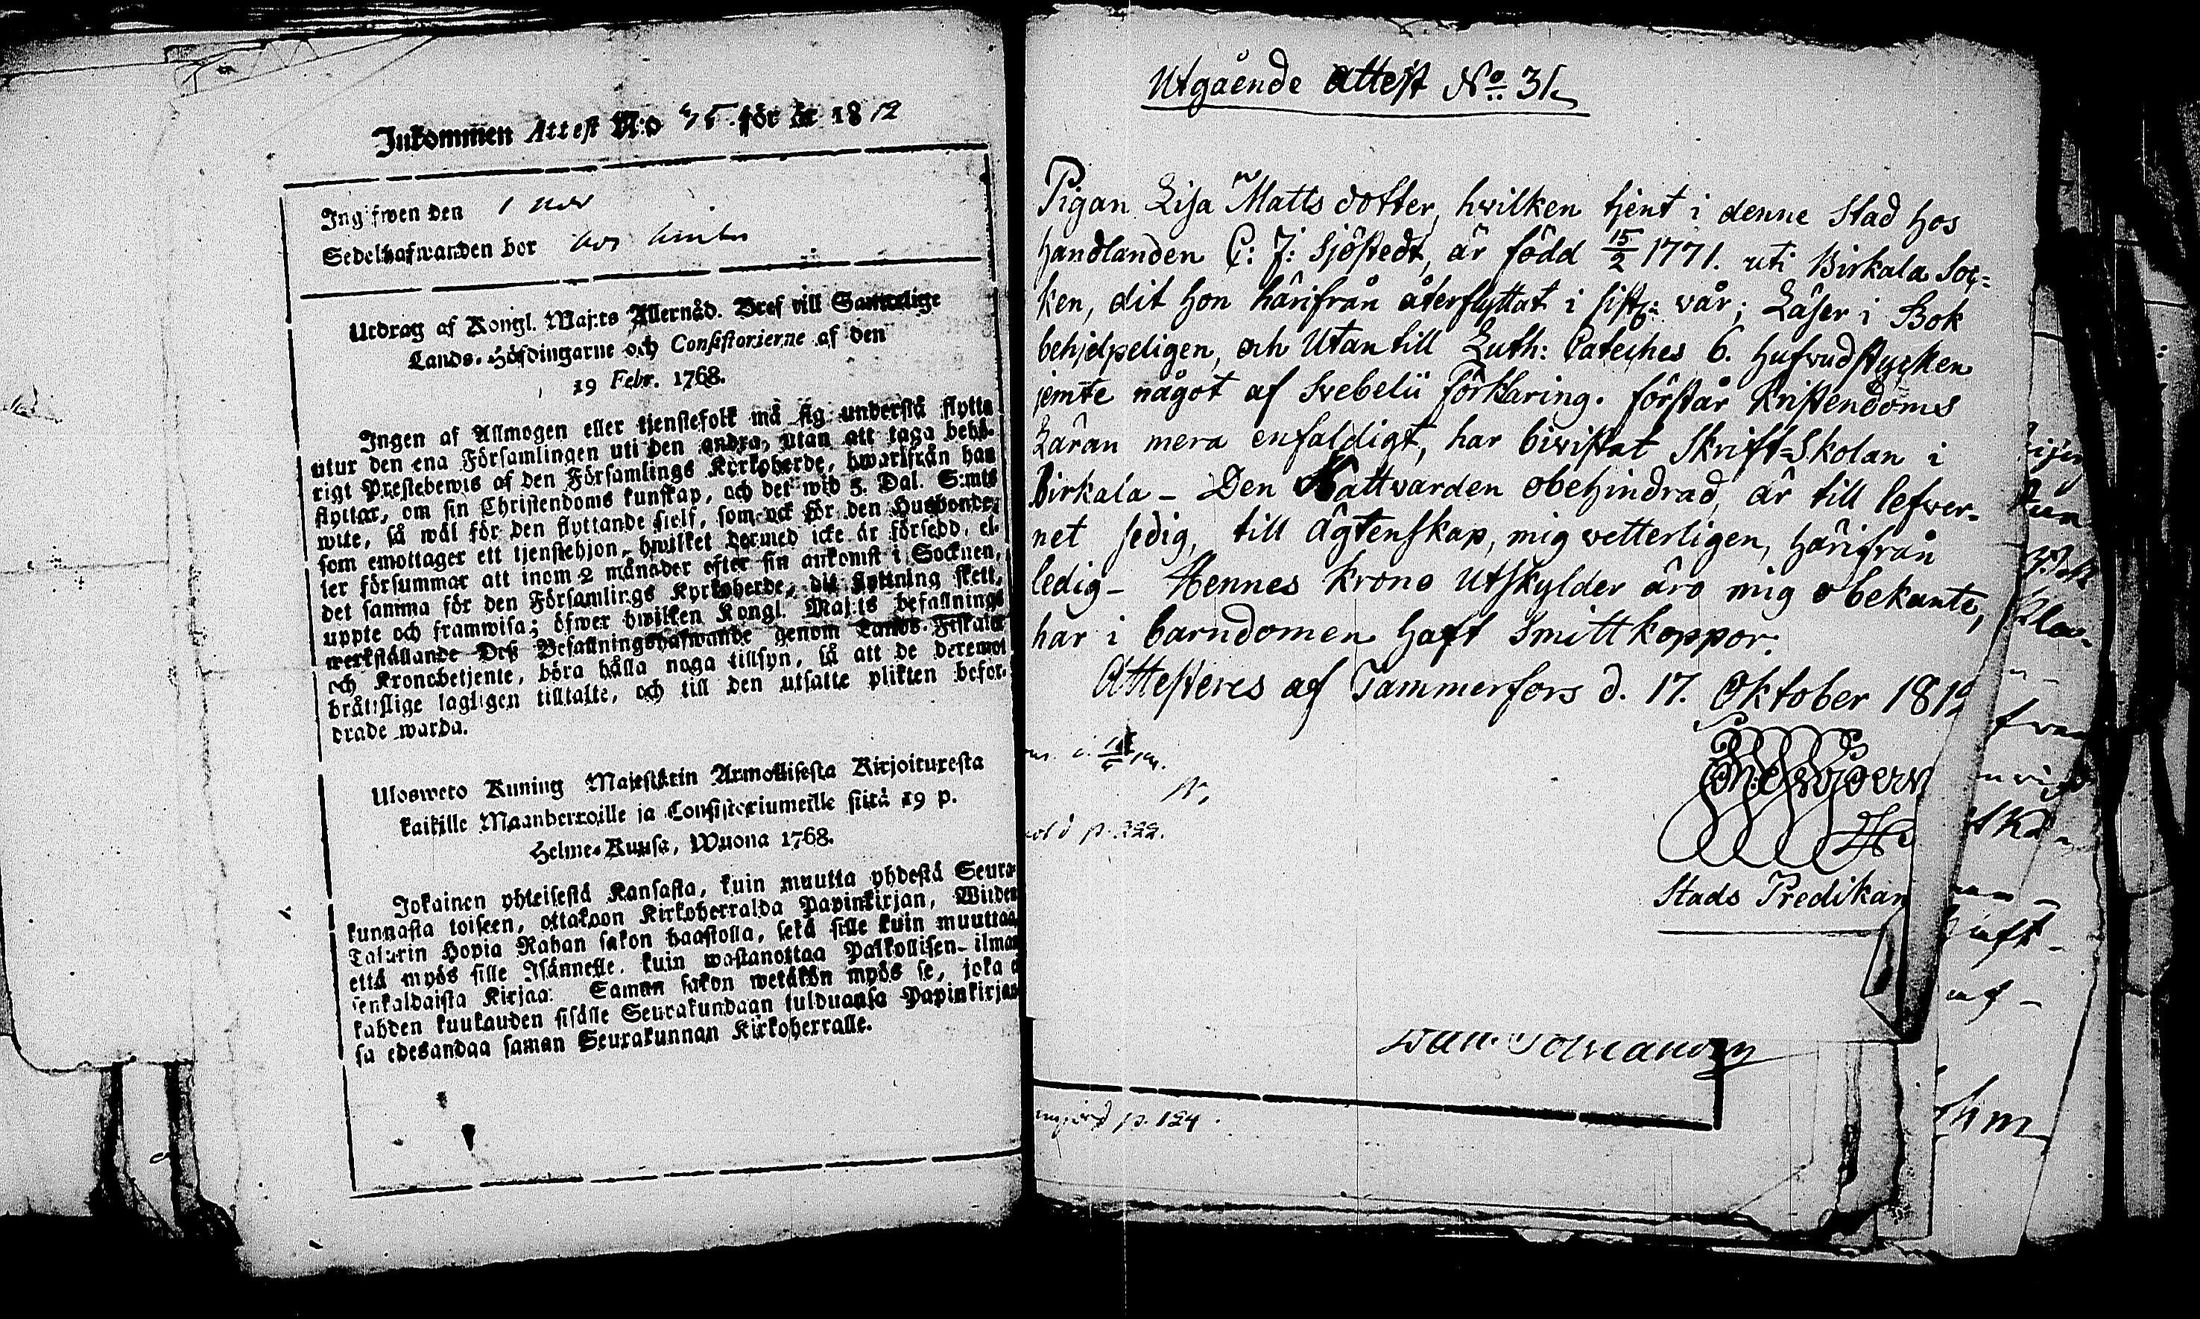 Inkommen Attest N:o 35 för år 1812
Ingifwen den 1 Nov
Sedelhafwanden bor hos
Utdrag af Kongl. Maj:ts Allernåd. Bref till Samtelige
Lands-Höfdingarne och Consistorierne af den
19 Febr. 1768.
Ingen af Allmogen eller tjenstefolk må sig understå flytta
utur den ena Församlingen uti den andra, utan att taga behö-
rigt Prestebewis af den Församlings Kyrkoherde, hwarifrån han
flyttar, om sin Christendoms kunskap, och det wid 5. Dal. S:mts
wite, så wäl för den flyttande sielf, som ock för den Husbonde,
som emottager ett tjenstehjon, hwilket dermed icke är försedd, el-
ler försummar att inom 2 månader efter sin ankomst i Socknen,
det samma för den Församlings Kyrkoherde, dit flyttning skett,
uppte och framwisa; öfwer hwilken Kongl. Maj:ts befallnings
werkställande Deß Befallningshafwande genom Lands-Fiskaler
och Kronobetjente, böra hålla noga tillsyn, så att de deremot
bråttslige lagligen tilltalte, och till den utsatte plikten befor-
drade warda.
Ulosweto Kuning Majestätin Armollisesta Kirjoituxesta
kaikille Maanherroille ja Consistoriumeille siitä 19 p.
Helme-Kuusa, Wuona 1768.
Jokainen yhteisestä Kansasta, kuin muutta yhdestä Seura-
kunnasta toiseen, ottakoon Kirkoherralda Papinkirjan, Wiiden
Talarin Hopia Rahan sakon haastolla, sekä sille kuin muuttaa,
että myös sille Isännelle, kuin wastanottaa Palkollisen ilman
senkaldaista Kirjaa. Saman sakon wetäkön myös se, joka
kahden kuukauden sisälle Seurakundaan tulduansa Papinkirjan-
sa edesandaa saman Seurakunnan Kirkoherralle.
Utgående attest No 31.
Pigan Lisa Mattsdotter, hvilken tjent i denne Stad hos
handlanden C: J: Sjöstedt, är född 15/2 1771. uti Birkala Soc-
ken, dit hon härifrån återflyttat i sistl: vår; Läser i Bok
behjelpeligen, och Utantill Luth: Cateches 6. hufvudstycken
jemte något af Svebelii Förklaring. förstår Kristendoms
Läran mera enfaldigt, har bivistat Skrift-Skolan i
Birkala - Den H Nattvarden obehindrad, är till lefver-
net sedig, till Ägtenskap, mig vetterligen, härifrån
ledig - Hennes Krono Utskylder äro mig obekante,
har i barndomen haft Smittkoppor.
Attesteres af Tammerfors d. 17. Oktober 1812
p. 222.
Stads Predikan
p. 124.